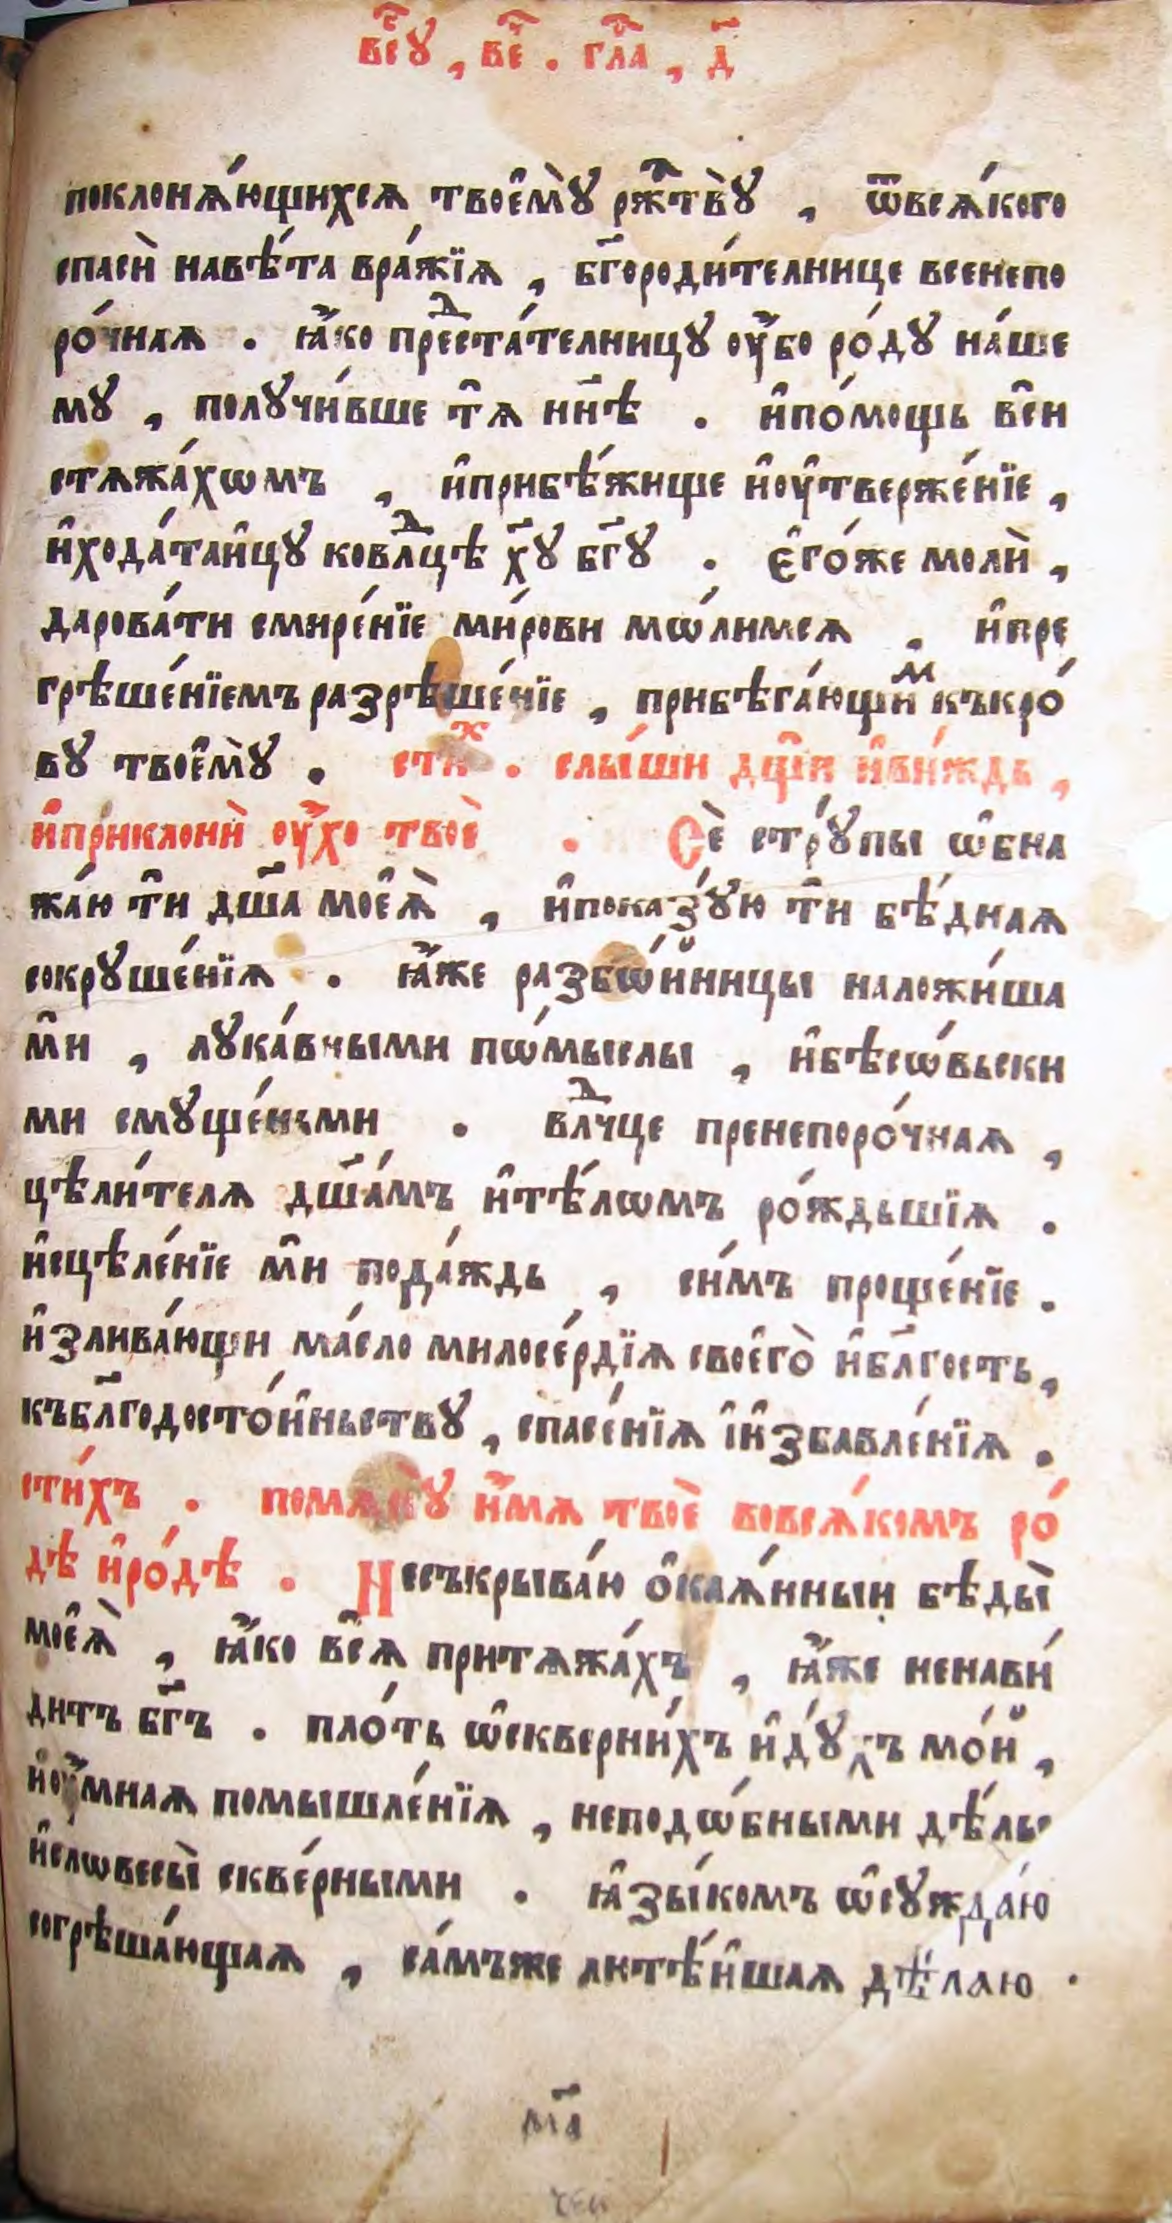 в̾сеꙋ҃ , ве҃ . гла҃ , д҃
поклонѧ́ющихсѧ твоемꙋ̀ рж҃твꙋ̀ , ѿвсѧ́кого
спасѝ навѣ́та вра́жїѧ , бг҃ороди́телнице всенепо
ро́чнаѧ . ꙗ҆́ко прⷣеста́телницꙋ оу҆́бо ро́дꙋ на́ше
мꙋ , полꙋчи́вше тѧ҆ нн҃ѣ . и҆по́мощь вси҆
стѧжа́хѡмъ , и҆прибѣ́жище и҆оу҆твержє́нїе ,
и҆хода́таицꙋ ковлⷣцѣ хꙋ҃ бг҃ꙋ . є҆го́же моли̾ ,
дарова́ти смире́нїе ми́рови мѡ́лимсѧ . и҆пре
грѣше́нїемъ разрѣше́нїе , прибѣга́ющиⷨ къкро́
вꙋ твоемꙋ̀ . стиⷯ . слы́ши дщ҃и и҆ви́ждь ,
и҆приклонѝ оу҆́хо твоѐ . Сѐ стрꙋ́пы ѡ҆бна
жа́ю ти҆ дш҃а моеѧ̀ , и҆показꙋ́ю ти҆ бѣ́днаѧ
сокрꙋше́нїѧ . ꙗ҆́же разбѡ́йницы наложи́ша
ми҆ , лꙋка́вными пѡ́мыслы , и҆бѣсѡ́вьски
ми смꙋще́ньми . влⷣчце пренепоро́чнаѧ ,
цѣли́телѧ дш҃а́мъ и҆тѣ́лѡмъ ро́ждьшїѧ .
и҆сцѣле́нїе ми҆ пода́ждь , си́мъ проще́нїе .
и҆злива́ющи ма́сло милосе́рдїѧ своего̀ и҆бл҃гость ,
къбл҃годосто́йньствꙋ , спасе́нїѧ і҆и҆збавле́нїѧ .
сти́хъ . помѧнꙋ̀ и҆́мѧ твоѐ вовсѧ́комъ ро́
дѣ и҆ро́дѣ . Несъкрыва́ю о҆каѧ́нныи бѣды̀
моеѧ̀ , ꙗ҆́ко всѧ҆ притѧжа́хъ , ꙗ҆́же ненави́
дитъ бг҃ъ . пло́ть ѡ҆скверни́хъ и҆дꙋ́хъ мо́й ,
и҆оу҆́мнаѧ помышле́нїѧ , неподѡ́бными дѣ́лы
и҆слѡвесы̀ скве́рными . ꙗ҆зы́комъ ѡ҆сꙋжда́ю
согрѣша́ющаѧ , са́мъже лютѣ́йшаѧ дѣ́лаю .
ма҃